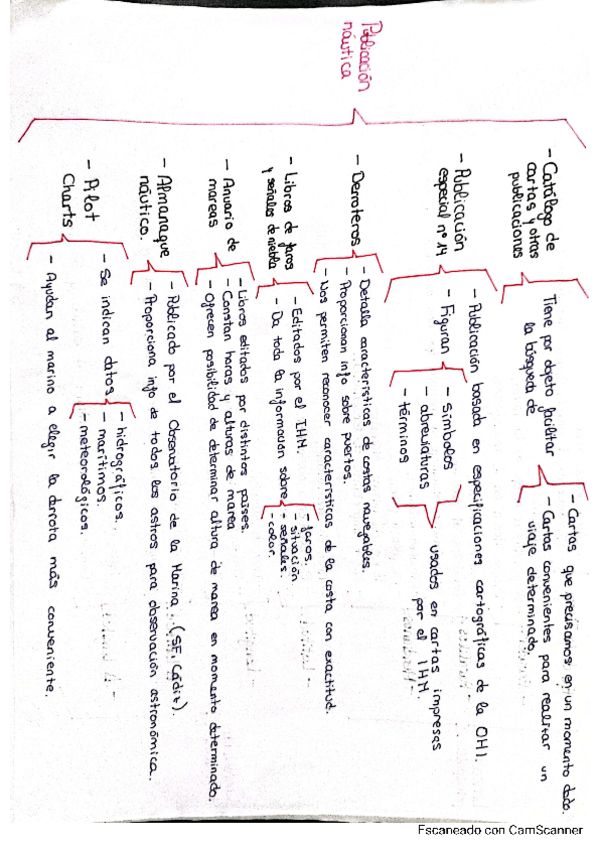 Publicación
náutica
- Catálogo de
cartas y otras
publicaciones
Tiene por objeto facilitar
la búsqueda de
- Cartas que precisamos en un momento dado.
- Cartas convenientes para realizar un
viaje determinado.
- Publicación
especial nº 14
- Publicación basada en especificaciones cartográficas de la OHI.
- Figuran
- símbolos
- abreviaturas
- términos
usados en cartas impresas
por el IHM.
- Derroteros
- Detalla características de costas navegables.
- Proporcionan info sobre puertos.
- Nos permiten reconocer características de la costa con exactitud.
- Libros de faros
y señales de niebla
- Editados por el IHM.
- Da toda la información sobre
- faros.
- situación
- señales.
- color.
- Anuario de
mareas
- Libros editados por distintos países.
- Constan horas y alturas de marea
- Ofrecen posibilidad de determinar altura de marea en momento determinado.
- Almanaque
náutico.
- Publicado por el Observatorio de la Marina (SF, Cádiz).
- Proporciona info de todos los astros para observación astronómica.
- Pilot
Charts
- Se indican datos
- hidrográficos.
- marítimos.
- meteorológicos.
- Ayudan al marino a elegir la derrota más conveniente.
Escaneado con CamScanner